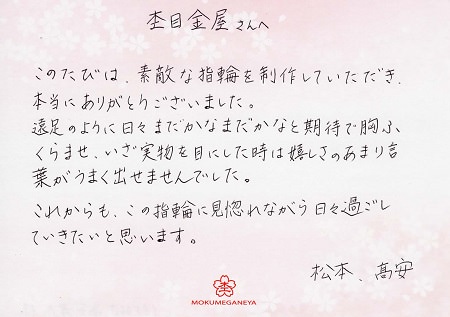 杢目金屋さんへ
このたびは、素敵な指輪を制作していただき、
本当にありがとうございました。
遠足のように日々まだかなまだかなと期待で胸ふ
くらませ、いざ実物を目にした時は嬉しさのあまり言
葉がうまく出せませんでした。
これからも、この指輪に見惚れながら日々過ごし
ていきたいと思います。
松本、髙安
MOKUMEGANEYA